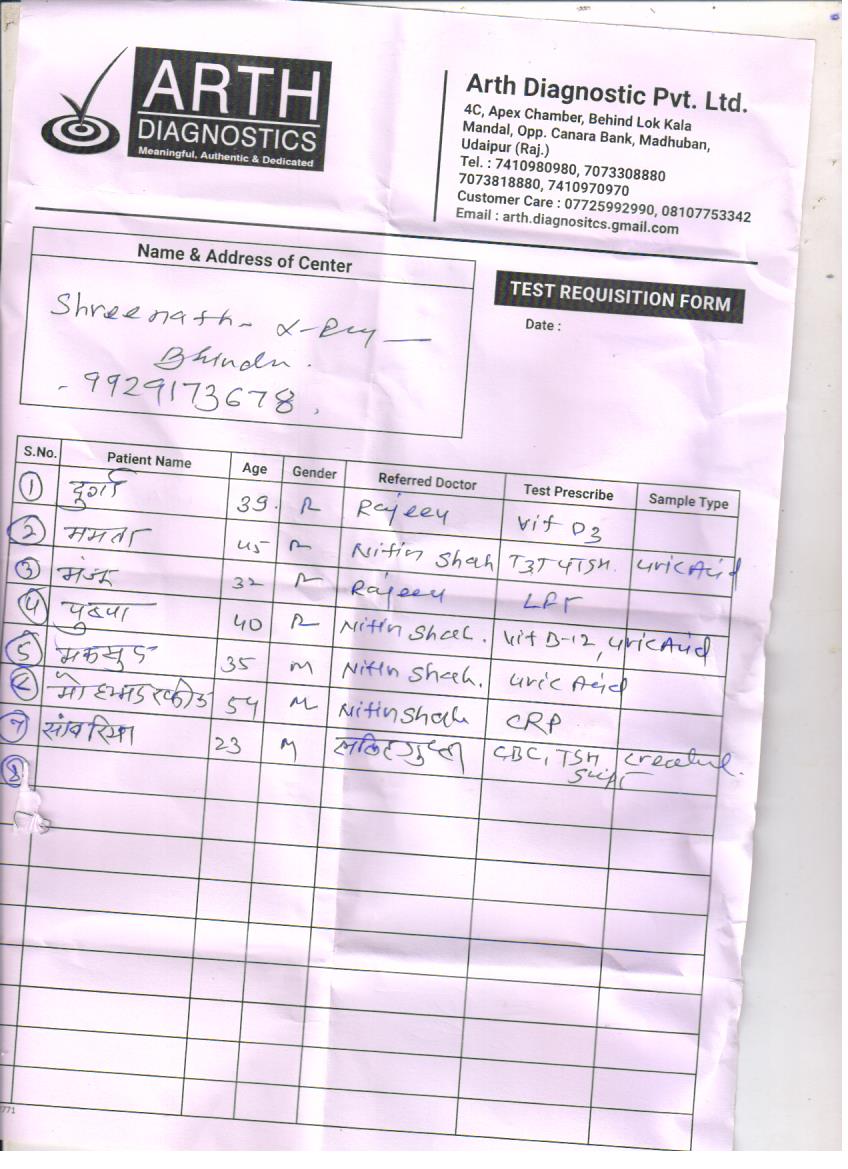 ARTH
DIAGNOSTICS
Meaningful, Authentic & Dedicated
Arth Diagnostic Pvt. Ltd.
4C, Apex Chamber, Behind Lok Kala
Mandal, Opp. Canara Bank, Madhuban,
Udaipur (Raj.)
Tel. : 7410980980, 7073308880
7073818880, 7410970970
Customer Care : 07725992990, 08107753342
Email : arth.diagnositcs.gmail.com
Name & Address of Center
Shreenath - X-Ray
Bhindr.
- 9929173678.
TEST REQUISITION FORM
Date :
S.No. Patient Name Age Gender Referred Doctor Test Prescribe Sample Type
1 दुर्गा 39. Rajeev Vit D3
2 ममता 45 Nitin Shah T3T4TSH. Uric Acid
3 मंजू 32 Rajeev LFT
4 पुष्पा 40 Nitin Shah. Vit B-12, Uric Acid
5 मकसुद 35 M Nitin Shah. Uric Acid
6 54 M Nitin Shah CRP
7 सांवरिया 23 M CBC, TSH
8
771